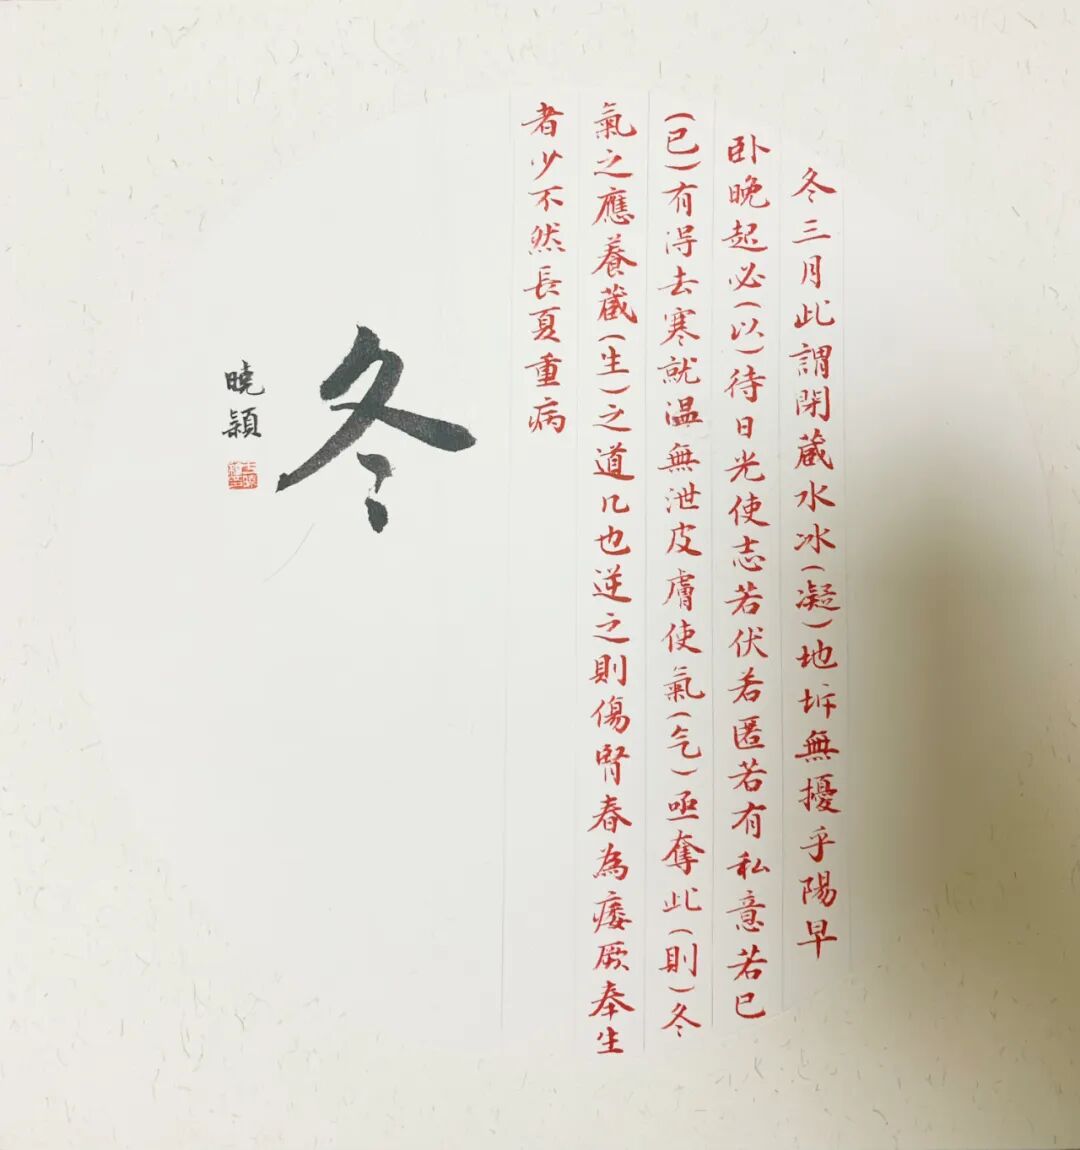 冬三月此謂閉蔵水冰(凝)地坼無擾乎陽早
卧晚起必(以)待日光使志若伏若匿若有私意若已
(已)有得去寒就温無泄皮膚使氣(气)亟奪此(則)冬
氣之應養蔵(生)之道几也逆之則傷腎春為痿厥奉生
者少不然長夏重病
冬
曉穎